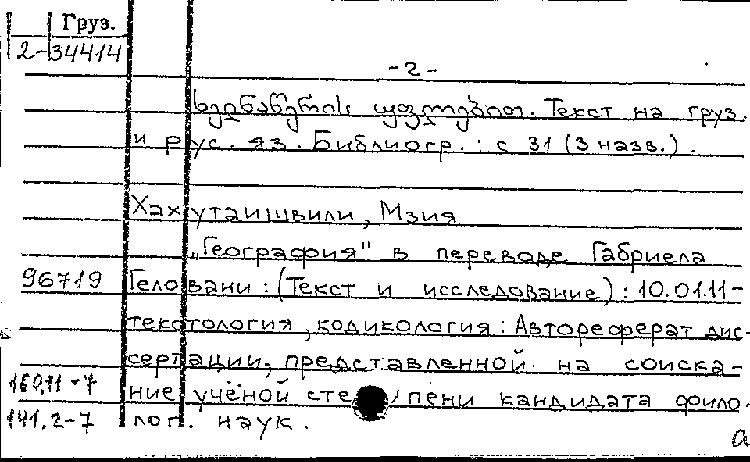 Груз.
2-34414
-2-
ხელნაწერის უფლებით. Текст на груз.
и рус. яз. Библиогр.: с 31 (3 назв.).
Хахутаишвили, Мзия
„География" в переводе Габриела
96719 Геловани: (Текст и исследование): 10.01.11-
текстология, кодикология: Автореферат дис-
сертации, представленной на соиска-
160,11-7 ние учёной степени кандидата фило-
141,2-7 лог. наук.